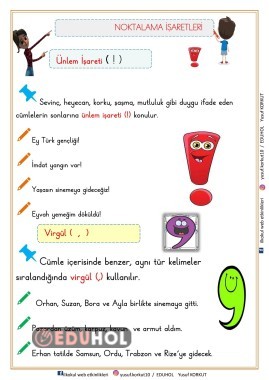 NOKTALAMA İŞARETLERİ
Ünlem İşareti ( ! )
Sevinç, heyecan, korku, şaşma, mutluluk gibi duygu ifade eden
cümlelerin sonlarına ünlem işareti (!) konulur.
Ey Türk gençliği!
İmdat yangın var!
Yaşasın sinemaya gideceğiz!
Eyvah yemeğim döküldü!
Virgül ( , )
Cümle içerisinde benzer, aynı tür kelimeler
sıralandığında virgül (,) kullanılır.
Orhan, Suzan, Bora ve Ayla birlikte sinemaya gitti.
Pazardan üzüm, karpuz, kavun ve armut aldım.
EDUHOL
Erhan tatilde Samsun, Ordu, Trabzon ve Rize'ye gidecek.
ilkokul web etkinlikleri yusuf korkut10 / EDUHOL Yusuf KORKUT
ilkokul web etkinlikleri yusuf korkut10 / EDUHOL Yusuf KORKUT